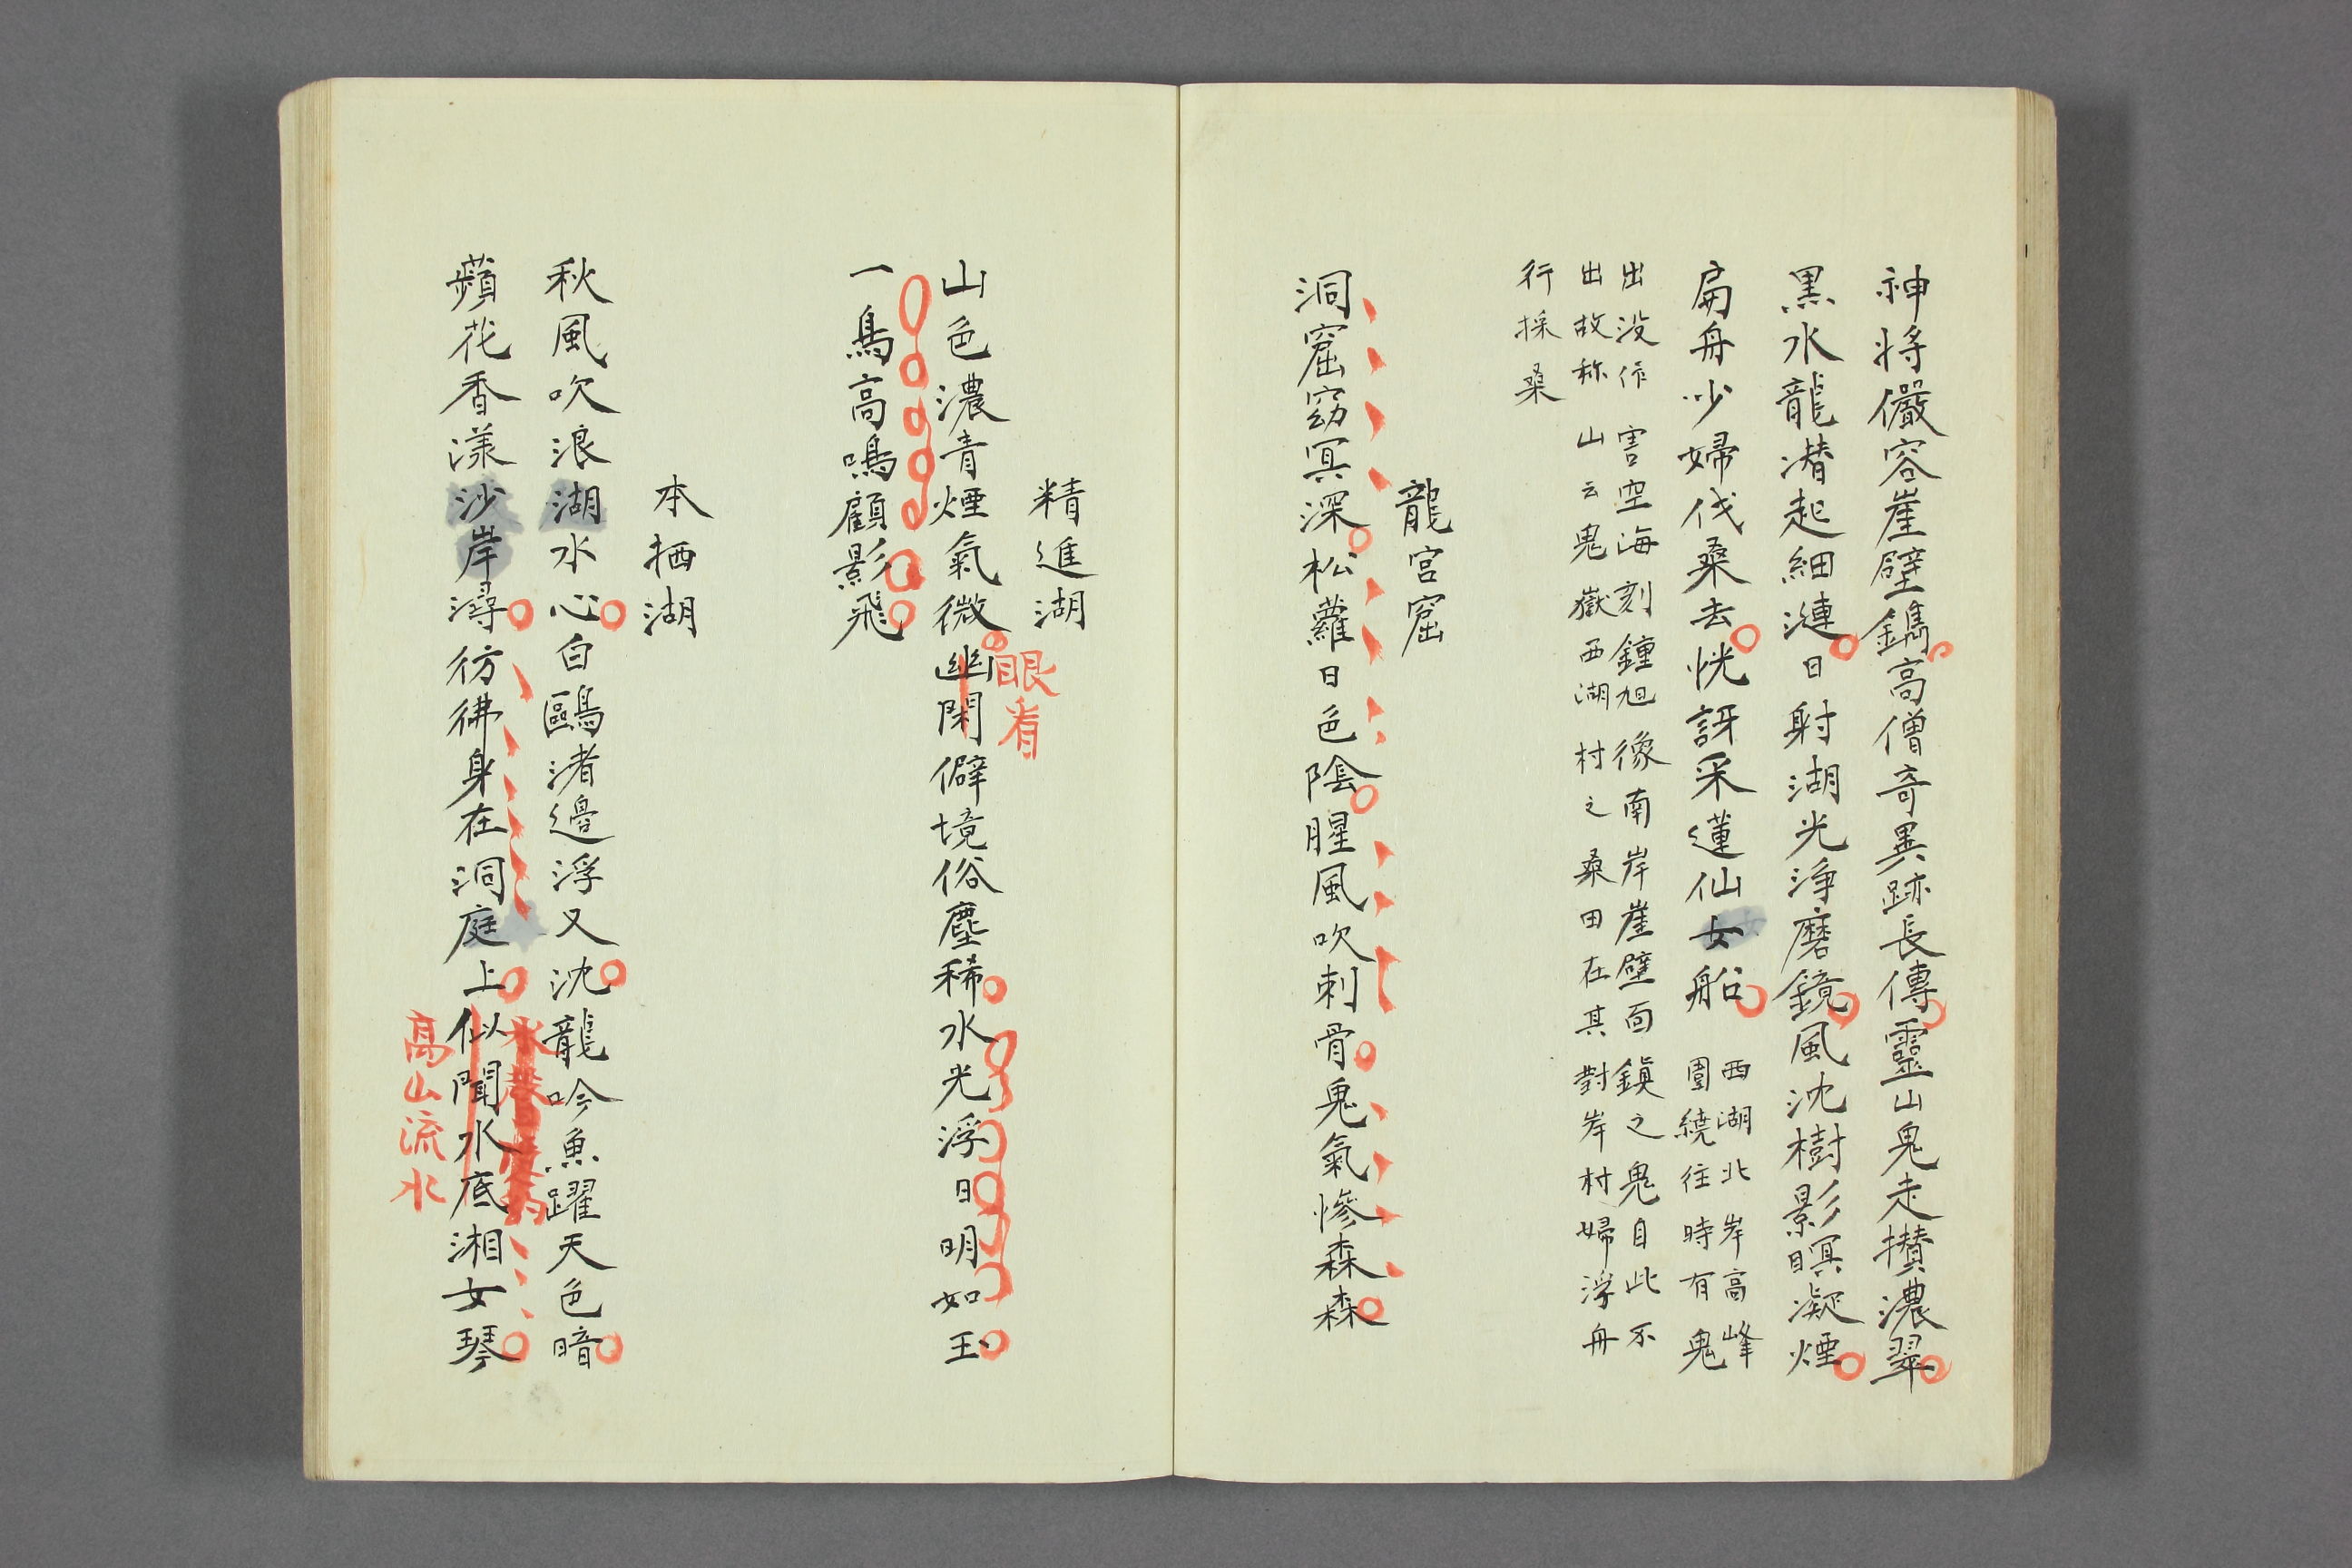 神将儼容崖壁鐫高僧奇異跡長傳靈山鬼走攢濃翠
黒水龍潜起細漣日射湖光浄磨鏡風沈樹影暝凝煙
扁舟少婦伐桑去恍訝采蓮仙女船
西湖北岸高峰
圍繞往時有鬼
出没作害空海刻鍾旭像南岸崖壁面鎮之鬼自此不
出故称山云鬼嶽西湖村之桑田在其對岸村婦浮舟
行採桑
龍宮窟
洞窟窈冥深松蘿日色陰腥風吹刺骨鬼氣惨森森
精進湖
山色濃青煙氣微幽閑僻境俗塵稀水光浮日明如玉
眼看
一鳥高鳴顧影飛
本栖湖
秋風吹浪湖水心白鷗渚邊浮又沈龍吟魚躍天色暗
蘋花香漾沙岸潯彷彿身在洞庭上似聞水底湘女琴
高山流水